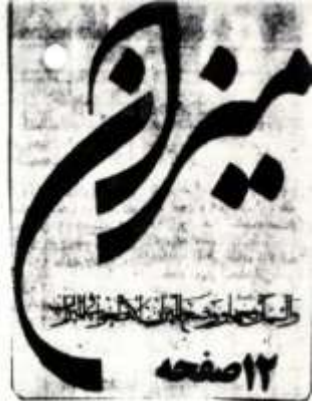 میزان
والسماء رفعها و وضع المیزان الا تطغوا فی المیزان
۱۲ صفحه